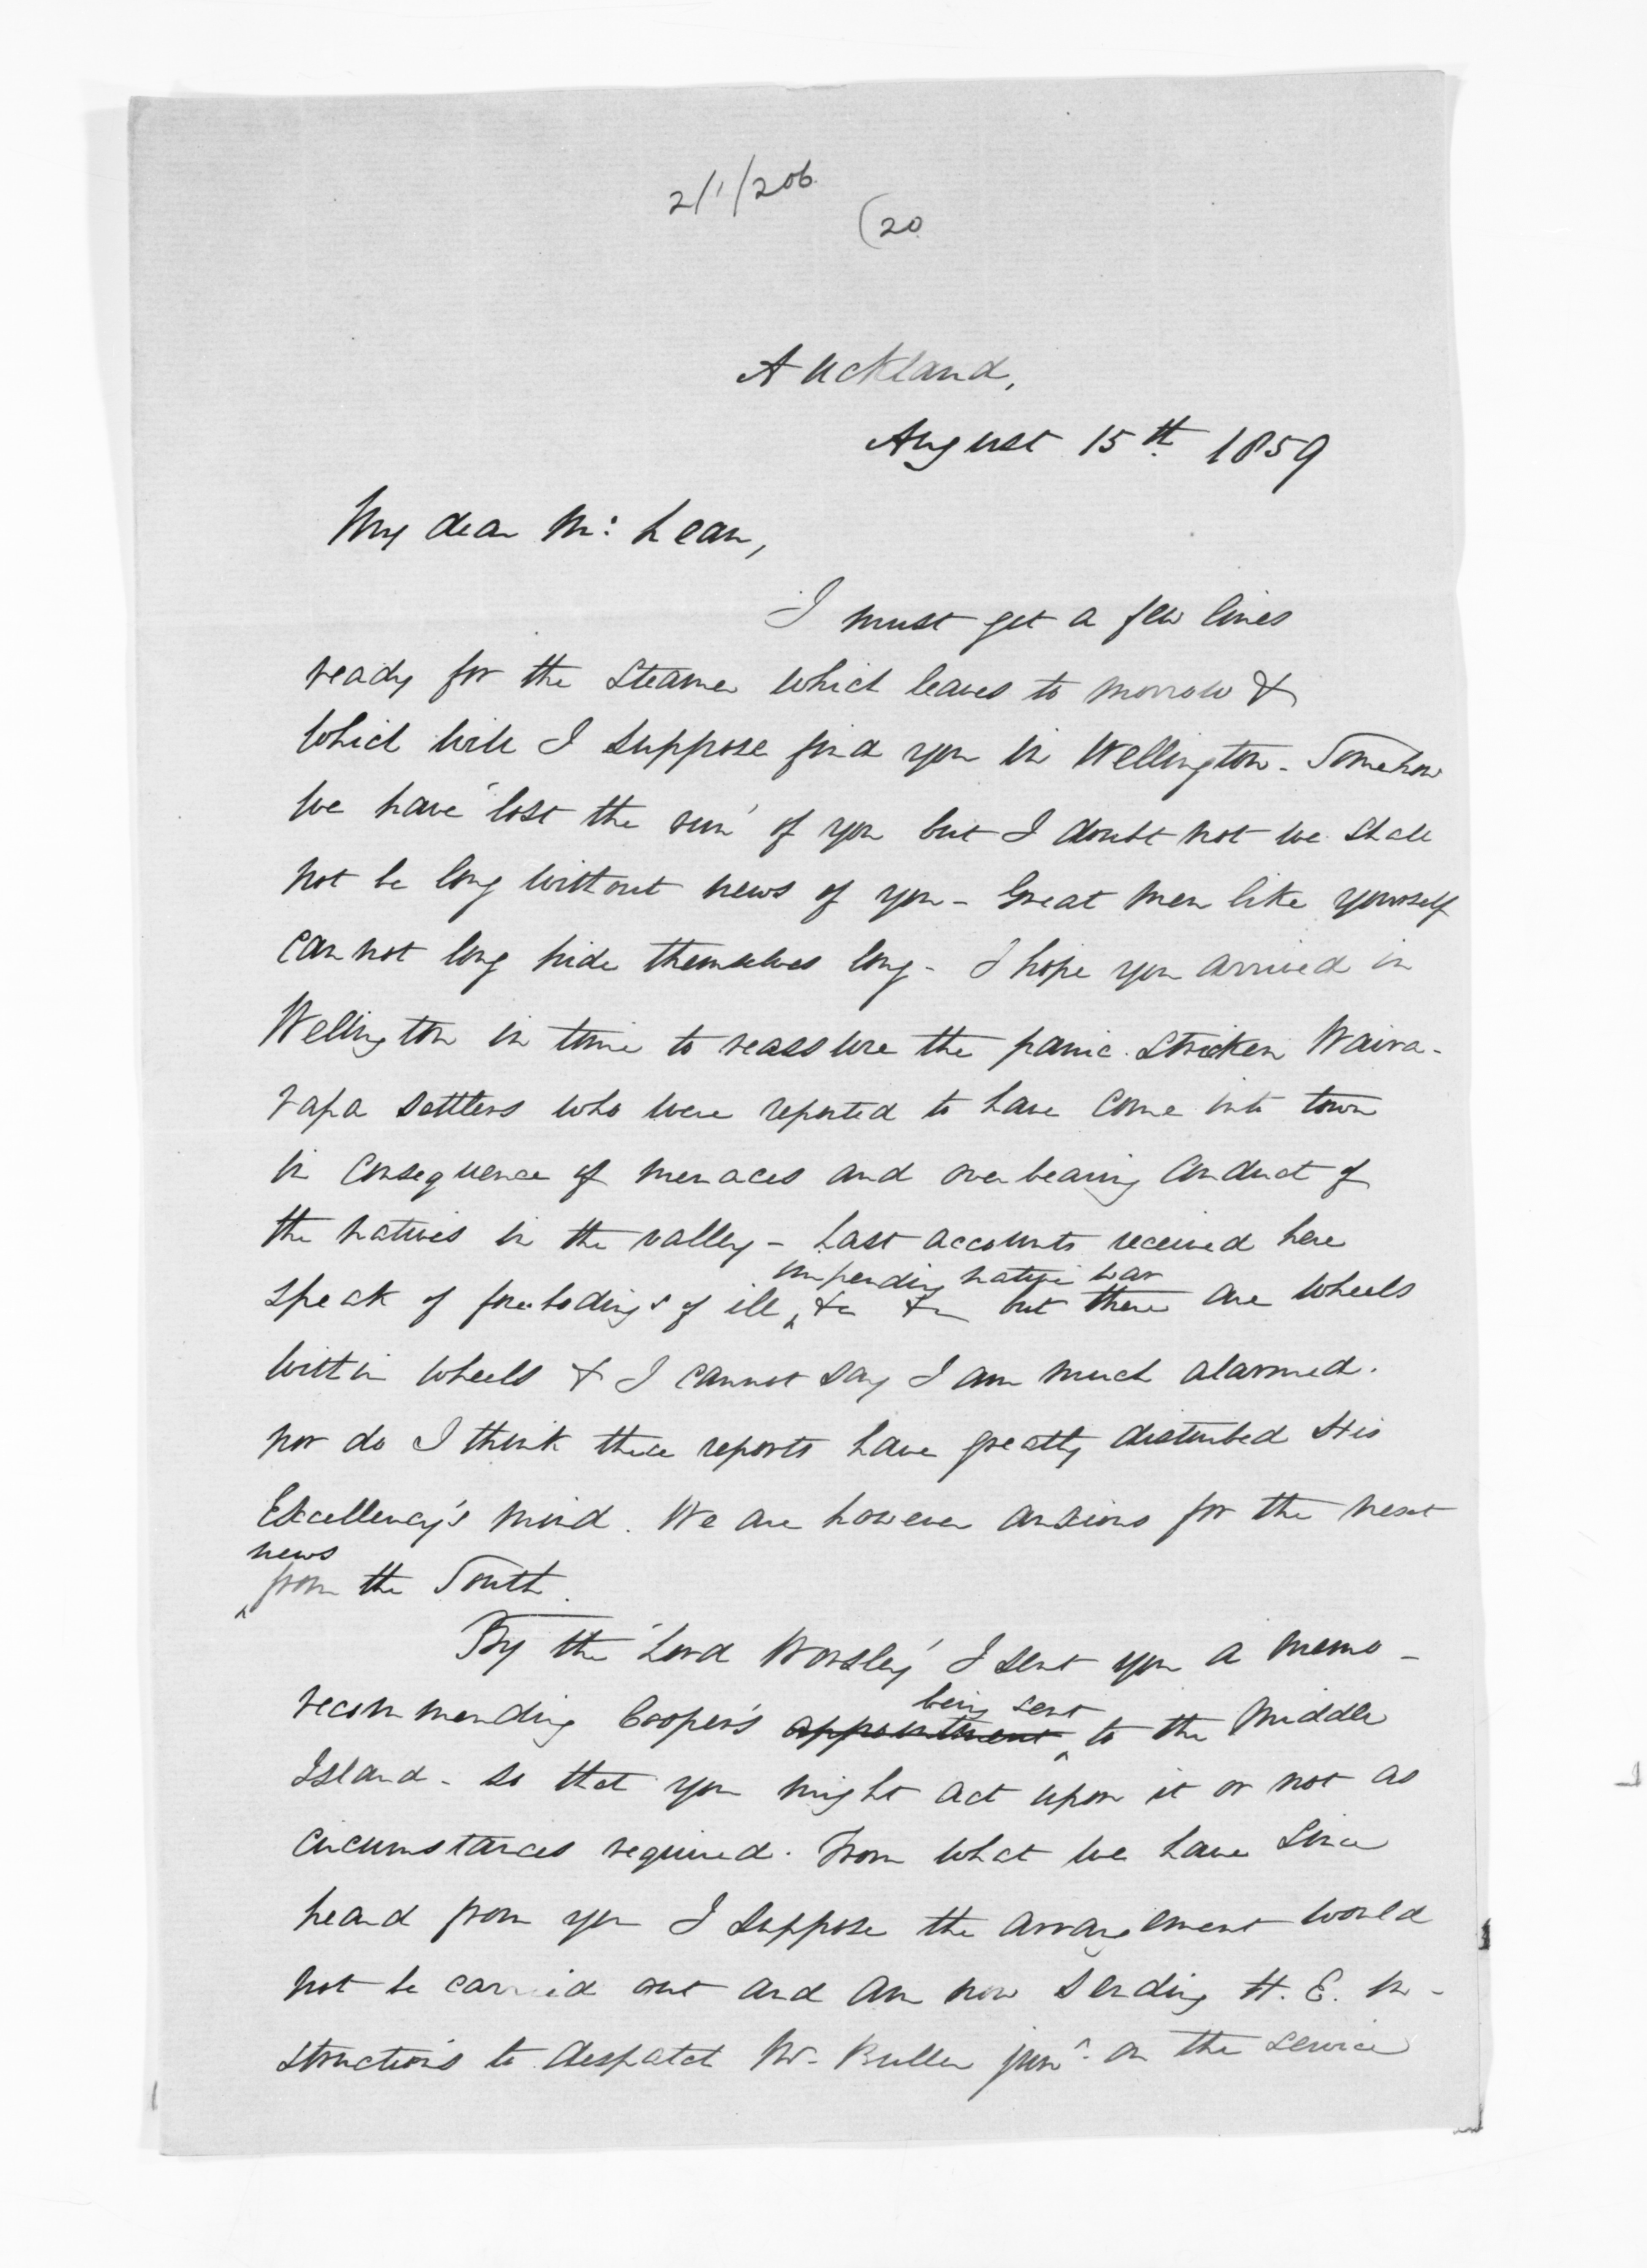 2/1/206
(20
Auckland,
August 15th 1859
My dear Mc: Lean,
I must get a few lines
ready for the Steamer which leaves to morrow &
which will I suppose find you in Wellington - Somehow
we have 'lost the run' of you but I doubt not we shall
not be long without news of you - Great men like yourself
can not long hide themselves long - I hope you arrived in
Wellington in time to reassure the panic stricken Waira-
rapa settlers who were reported to have come into town
in consequence of menaces and overbearing conduct of
the natives in the valley - Last accounts received here
impending native war
speak of forebodings of ill ^ &c &c but there are wheels
within wheels & I cannot say I am much alarmed.
nor do I think these reports have greatly disturbed His
Excellency's mind. We are however anxious for the next
news
^ from the South.
By the 'Lord Worsley' I sent you a memo -
being sent
recommending Cooper's appointment ^ to the Middle
Island - so that you might act upon it or not as
circumstances required. From what we have since
heard from you I suppose the arrangement would
not be carried out and am now sending H. E. in-
structions to despatch Mr. Buller junr. on the service